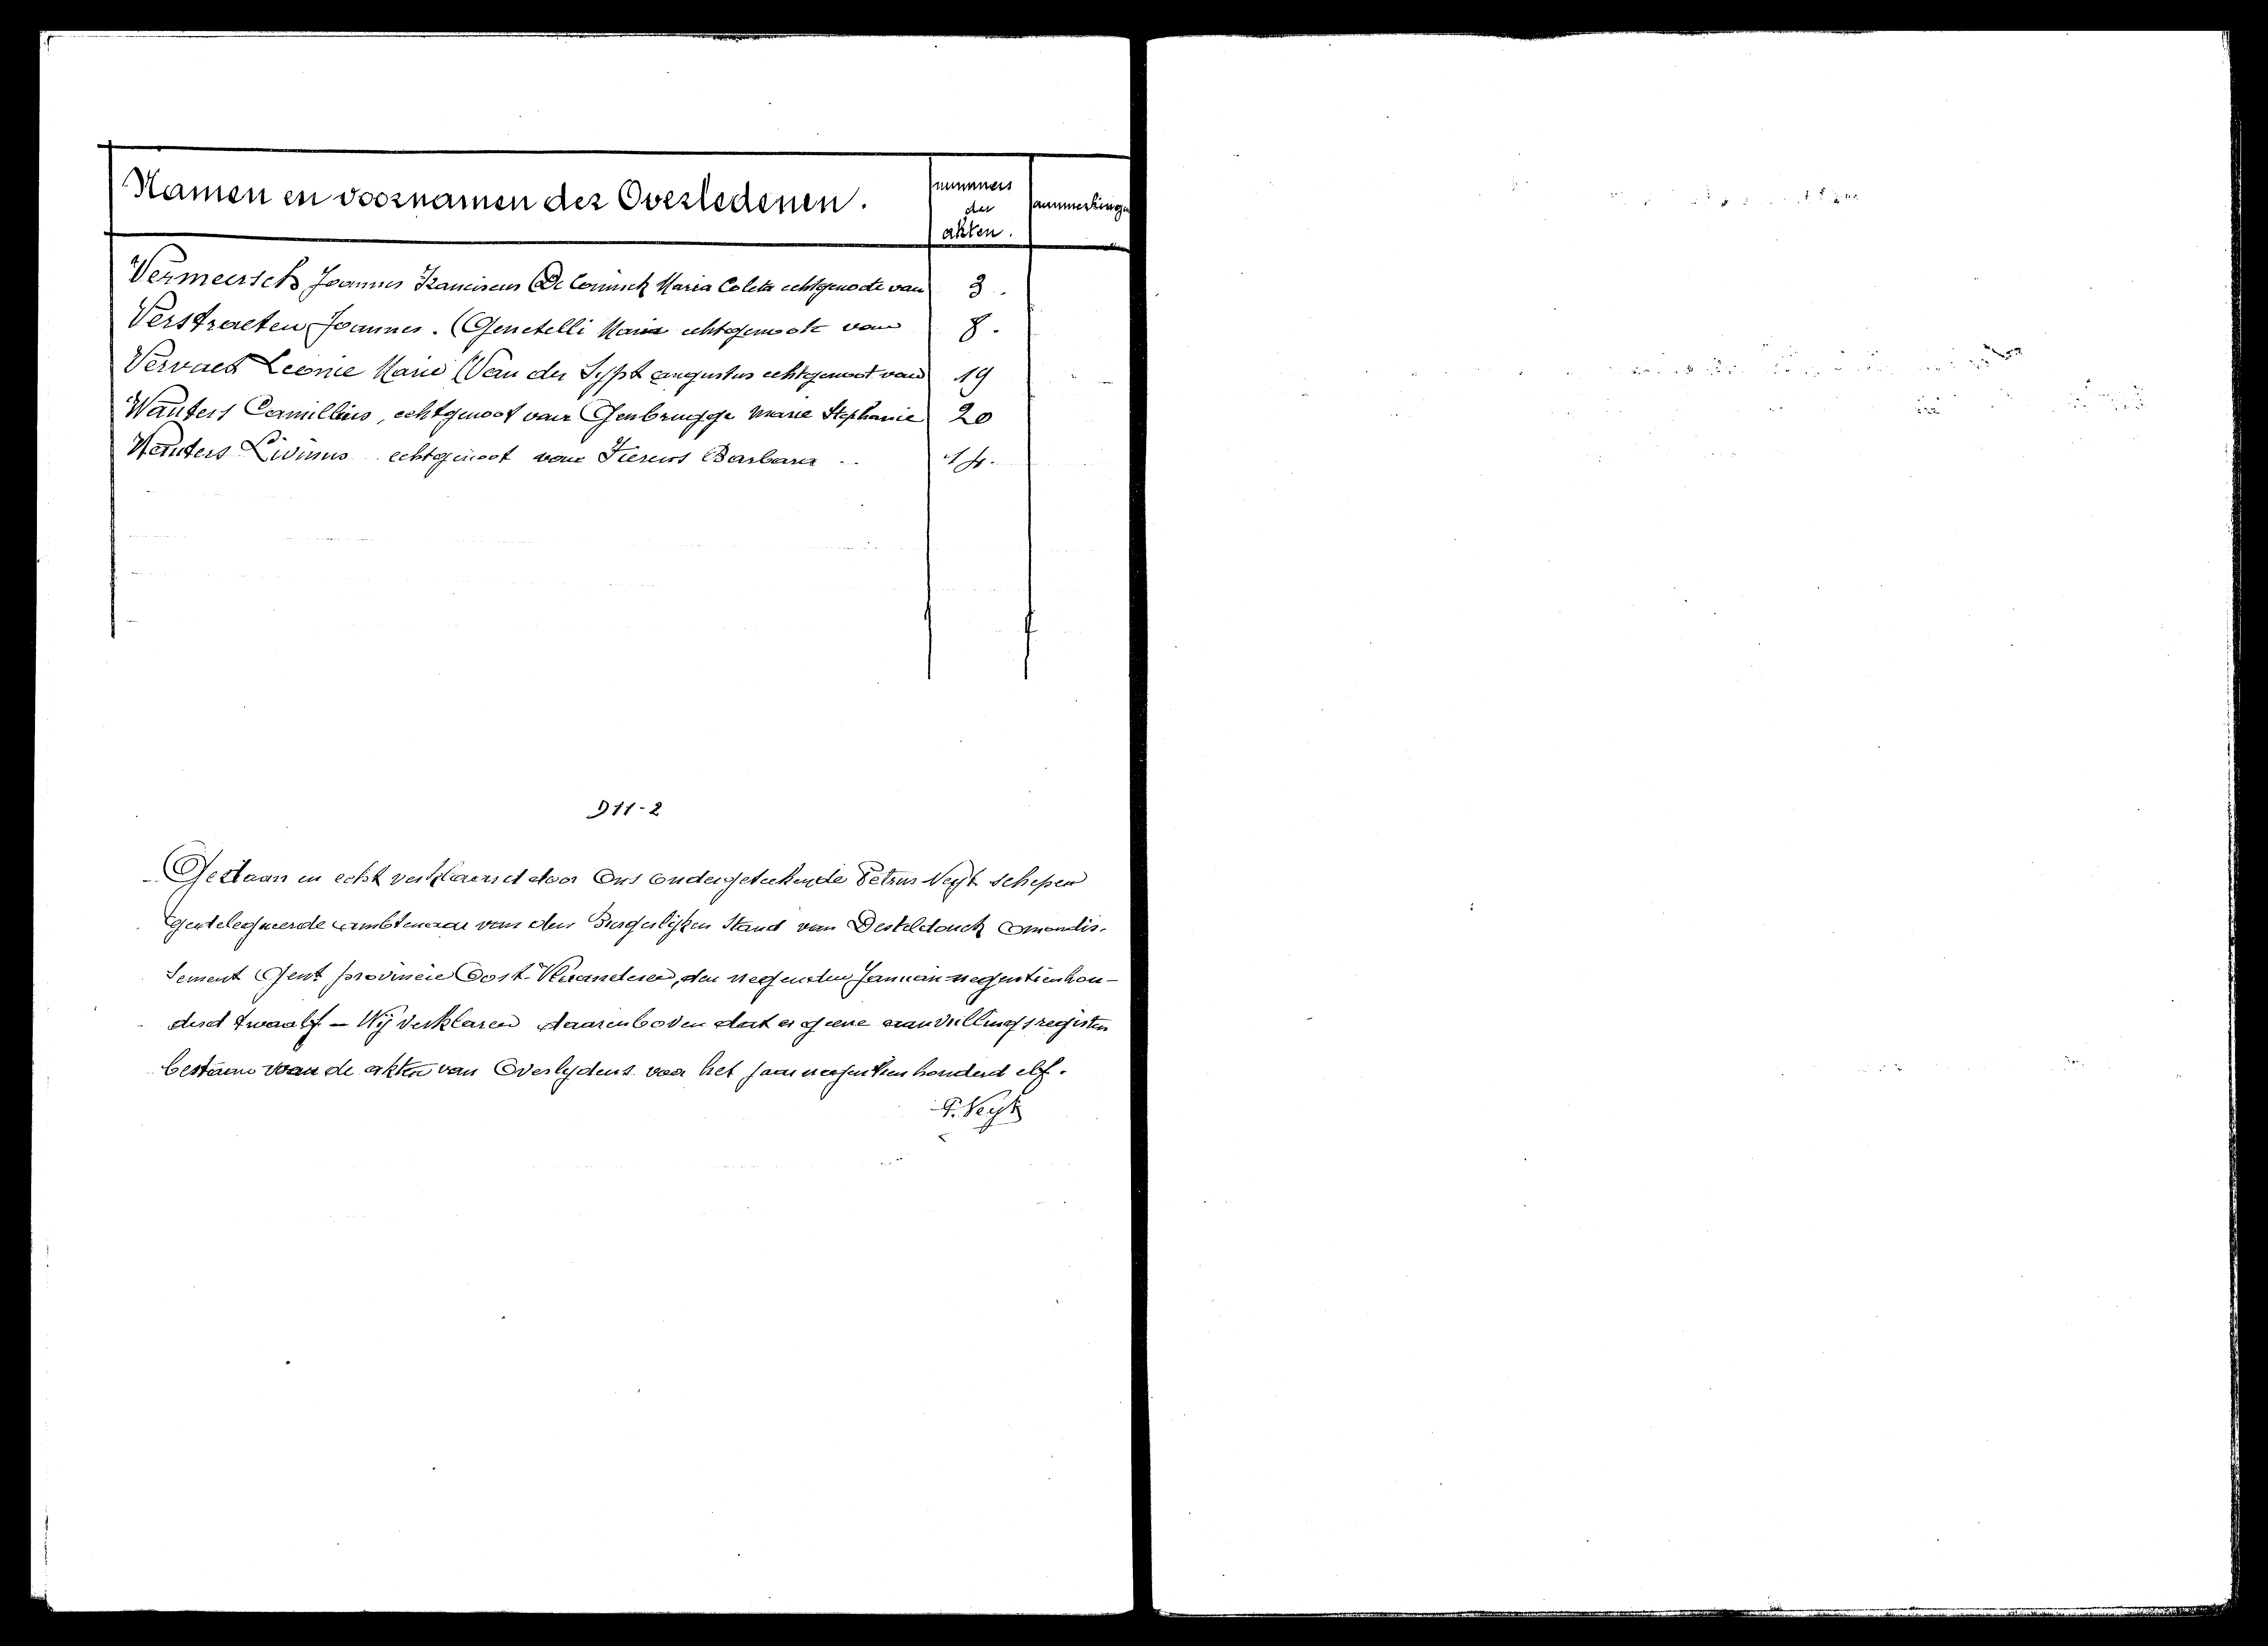 Namen en voornamen der Overledenen.
nummers
der
akten.
aanmerkingen
Vermeersch Joannes Franciscus (De Coninck Maria Coleta echtgenoote van 3.
Verstraeten Joannes. (Genetelli Maria echtgenoote van 8.
Vervaet Leonie Marie (Van der Sypt augustus echtgenoot van 19
Wauters Camillius, echtgenoot van Genbrugge Marie Stephanie 20
Wauters Livinus echtgenoot van Fierens Barbara 14.
D11-2
Gedaan en echt verklaard door Ons ondergeteekende Petrus Neyt schepen
gedelegueerde ambtenaar van den Burgerlijken Stand van Desteldonck
sement Gent provincie Oost-Vlaanderen, den negenden Januari negentienhon-
derd twaalf - Wij verklaren daarenboven dat er geene aanvullingsregisters
bestaan van de akten van Overlydens voor het jaar negentien honderd elf.
P. Neyt